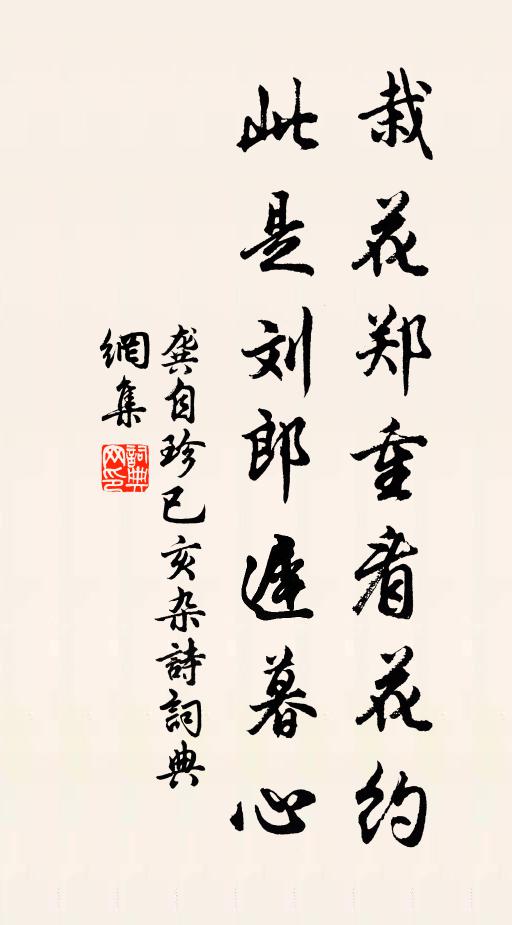 栽花郑重看花约
此是刘郎遲暮心
龚自珍己亥杂詩詞典
網集
詞典
网印